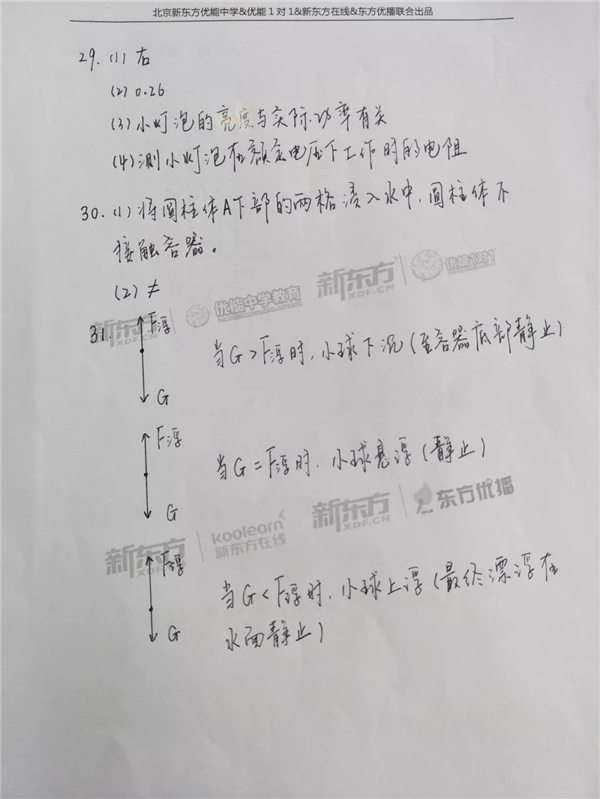 北京新东方优能中学&优能1对1&新东方在线&东方优播联合出品
29. (1) 右
(2) 0.26
(3) 小灯泡的亮度与实际功率有关
(4) 测小灯泡在额定电压下工作时的电阻
30. (1) 将圆柱体A下部的两格浸入水中，圆柱体不
接触容器。
(2) ≠
新东方 XDF.CN 优能中学教育 新东方 XDF.CN 优能1对1
31.
F浮
当G>F浮时，小球下沉(至容器底部静止)
G
F浮
当G=F浮时，小球悬浮(静止)
G
新东方 XDF.CN koolearn 新东方在线 新东方 XDF.CN 东方优播
F浮
当G<F浮时，小球上浮(最终漂浮在
G
水面静止)